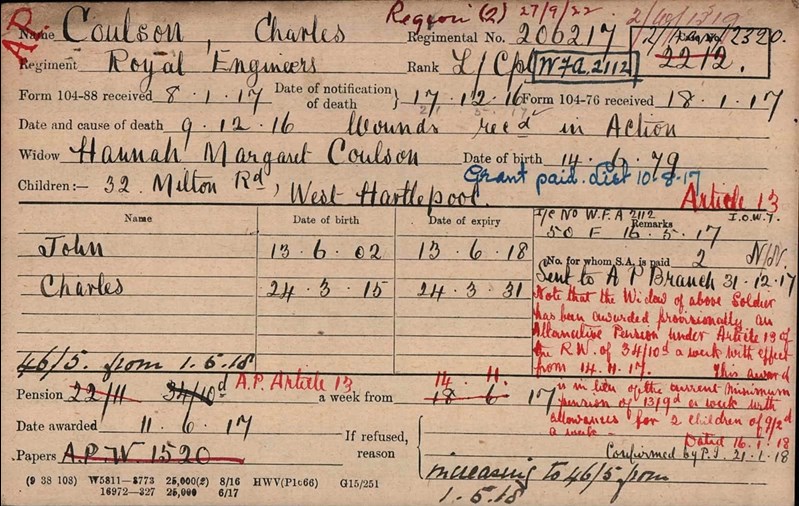 A.P.
Region (2) 27/9/22
Name Coulson, Charles Regimental No. 206217
2212.
Regiment Royal Engineers Rank L/Cpl W.F.A. 2112
Form 104-88 received 8.1.17 Date of notification of death 17.12.16 Form 104-76 received 18.1.17
Date and cause of death 9.12.16 Wounds rec'd in Action
Widow Hannah Margaret Coulson Date of birth 14.6.79
Grant paid. List 10.8.17
Children:— 32 Milton Rd, West Hartlepool.
Article 13
Name Date of birth Date of expiry
I/c No W.F.A 2112 I.O.W.T.
Remarks
50 F 16.5.17
John 13.6.02 13.6.18
No. for whom S.A. is paid 2 N/N.
Sent to A P Branch 31.12.17
Charles 24.3.15 24.3.31
Note that the Widow of above Soldier
has been awarded provisionally an
Alternative Pension under Article 13 of
the R.W. of 34/10d a week with effect
from 14.11.17. This award
is in lieu of the current minimum
pension of 13/9d a week with
allowances for 2 children of 9/2d
a week
Dated 16.1.18
Confirmed by P.I. 21.1.18
46/5. from 1.5.18
A.P. Article 13 14 11.
Pension 22/11 34/10d a week from 18 6 17
Date awarded 11.6.17
Papers A.P.W 1520 If refused, reason
increasing to 46/5 from
1.5.18
(9 38 103) W5811—3773 25,000(2) 8/16 HWV(P1c66) G15/251
16972—327 25,000 6/17